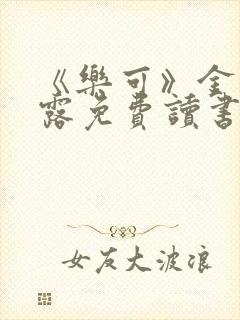 《樂可》全
露免費讀書
女友大波浪